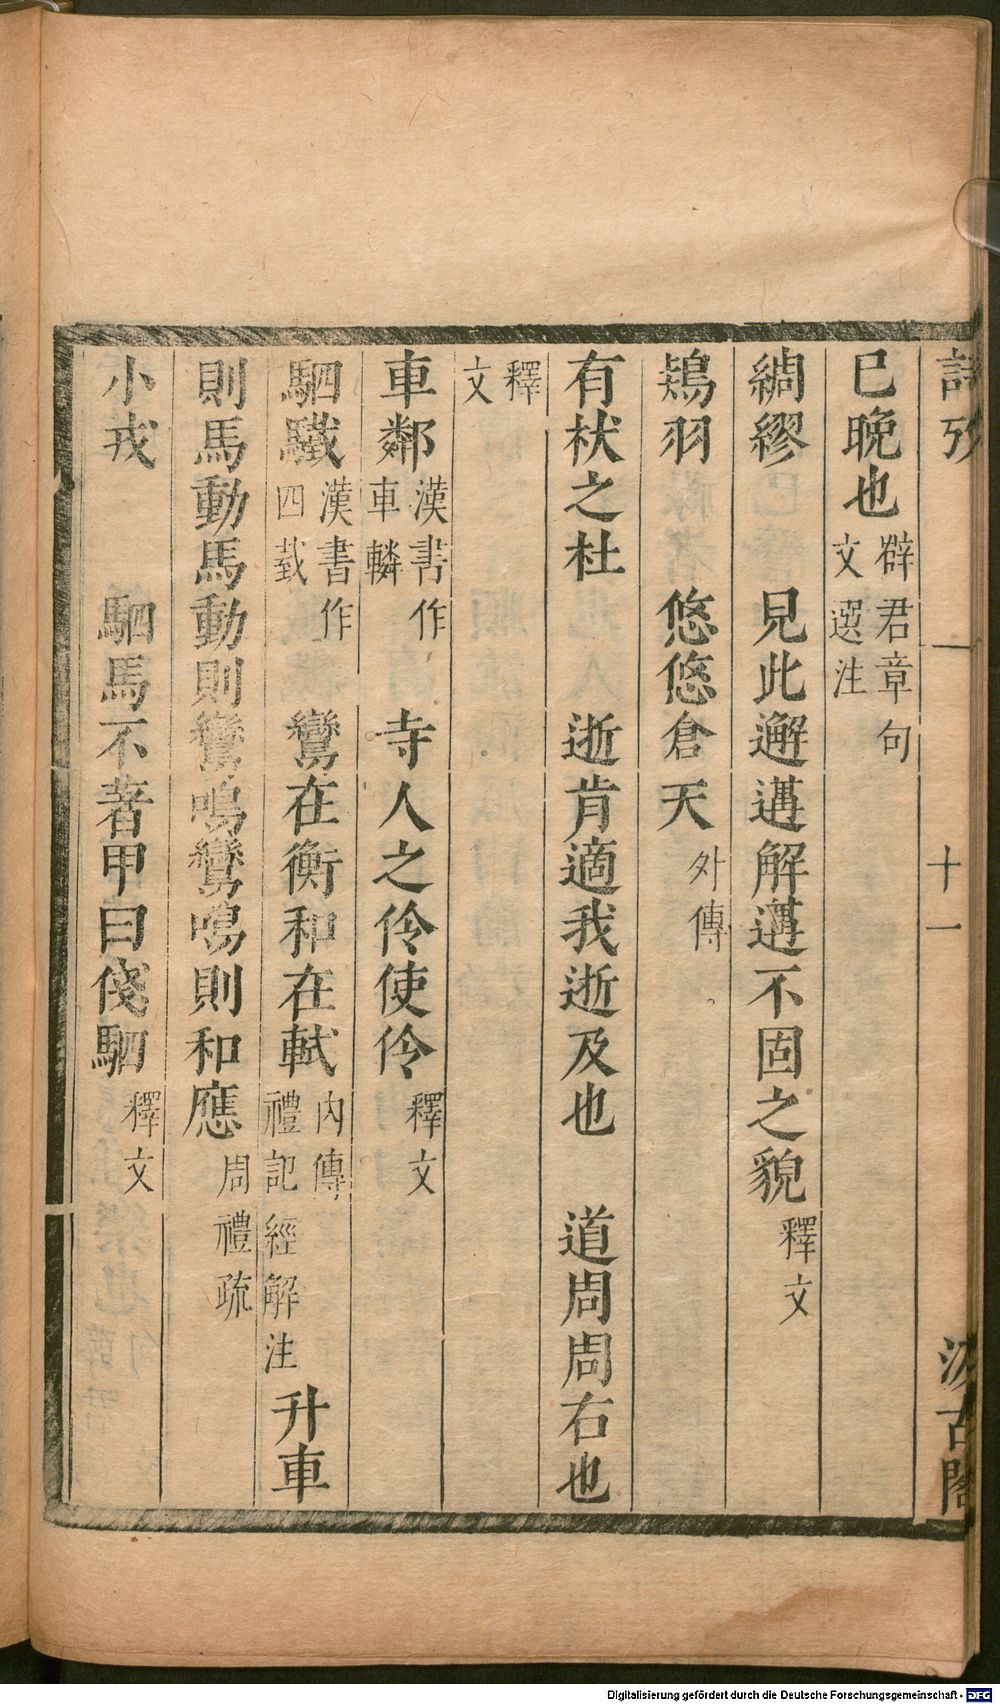 詩攷 十一 汲古閣
巳晚也 薛君章句文選注
綢繆 見此邂遘解遘不固之貌 釋文
鴇羽 悠悠倉天 外傳
有杕之杜 逝肯適我逝及也 道周周右也
釋文
車鄰 漢書作車轔 寺人之伶使伶 釋文
駟驖 漢書作四臷 鸞在衡和在軾 內傳禮記經解注 升車
則馬動馬動則鸞鳴鸞鳴則和應 周禮疏
小戎 駟馬不著甲曰俴駟 釋文
Digitalisierung gefördert durch die Deutsche Forschungsgemeinschaft - DFG